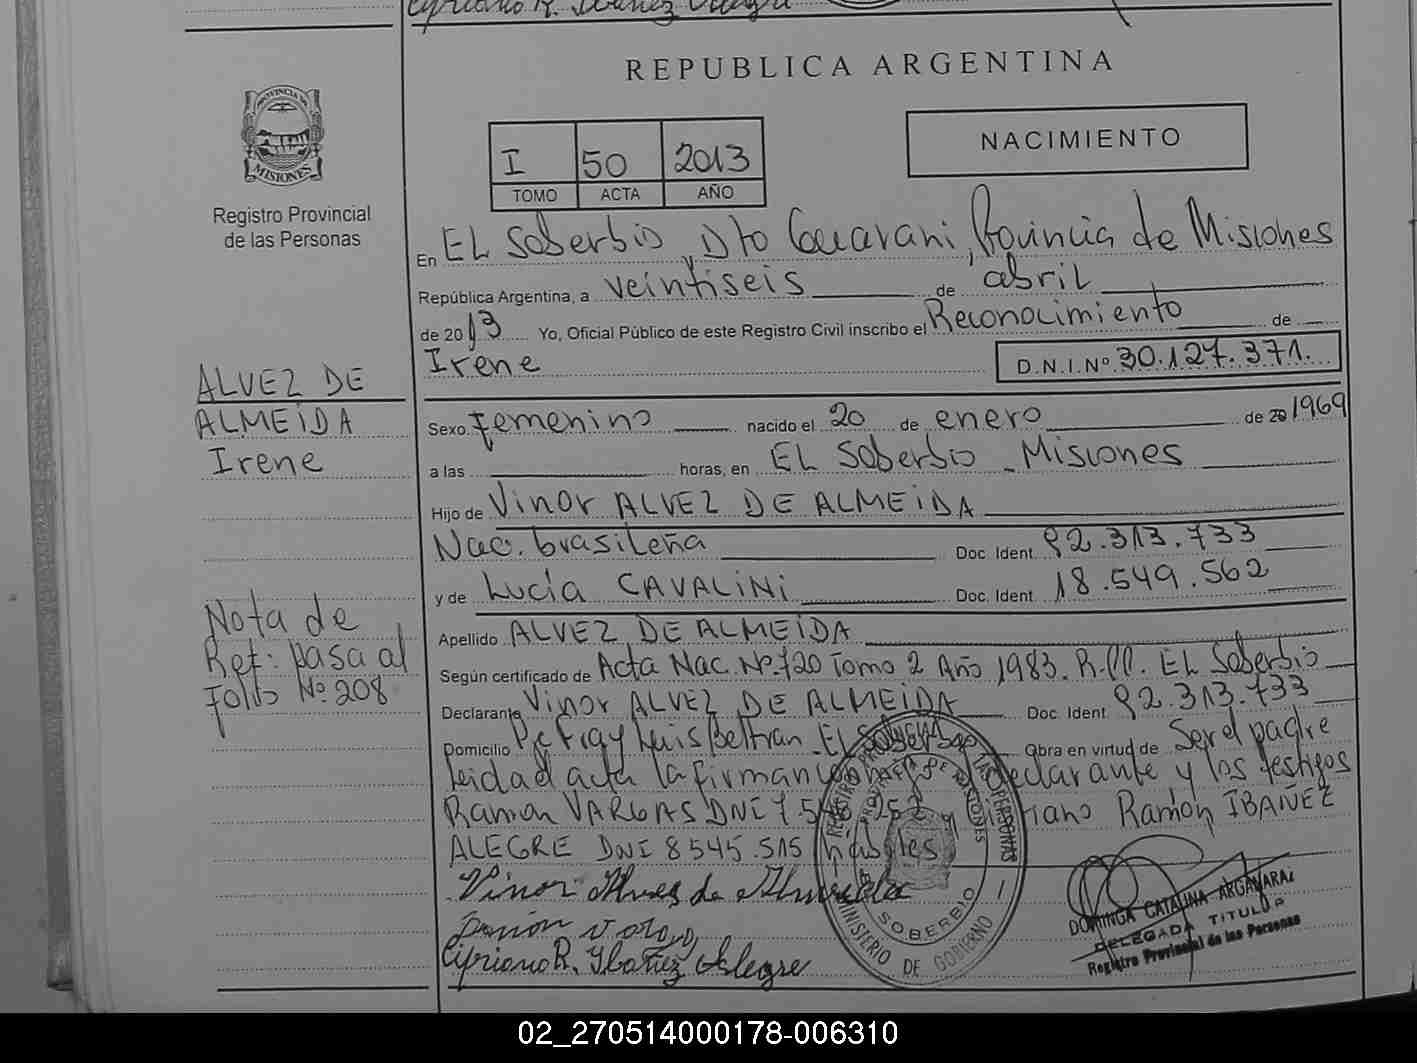 Cypriano R. Ibañez Alegre
REPUBLICA ARGENTINA
PROVINCIA DE
MISIONES
Registro Provincial
de las Personas
I 50 2013
TOMO ACTA AÑO
NACIMIENTO
En EL Soberbio, Dto Guarani, Provincia de Misiones
República Argentina, a veintiseis de abril
de 2013 Yo, Oficial Público de este Registro Civil inscribo el Reconocimiento de
Irene D.N.I.Nº 30.127.371.
ALVEZ DE
ALMEIDA
Irene
Sexo femenino nacido el 20 de enero de 20 1969
a las horas, en EL Soberbio - Misiones
Hijo de Vinor ALVEZ DE ALMEIDA
Nac. brasileña Doc. Ident. 92.313.733
y de Lucía CAVALINI Doc. Ident. 18.549.562
Apellido ALVEZ DE ALMEIDA
Según certificado de Acta Nac. Nº 720 Tomo 2 Año 1983. R.PP. EL Soberbio
Declarante Vinor ALVEZ DE ALMEIDA Doc. Ident. 92.313.733
Domicilio Pje Fray Luis Beltran - EL Obra en virtud de Ser el padre
leida el acta la firman declarante y los testigos
Ramon VARGAS DNI Ramón IBAÑEZ
ALEGRE DNI 8545.515 habiles
Nota de
Ref: pasa al
folio Nº 208
Vinor Alves de Almeida
Cypriano R. Ibañez Alegre
REGISTRO PROVINCIAL DE LAS PERSONAS
PROVINCIA DE MISIONES
SOBERBIO
MINISTERIO DE GOBIERNO
DOMINGA CATALINA
DELEGADA TITULAR
Registro Provincial de las Personas
02_270514000178-006310